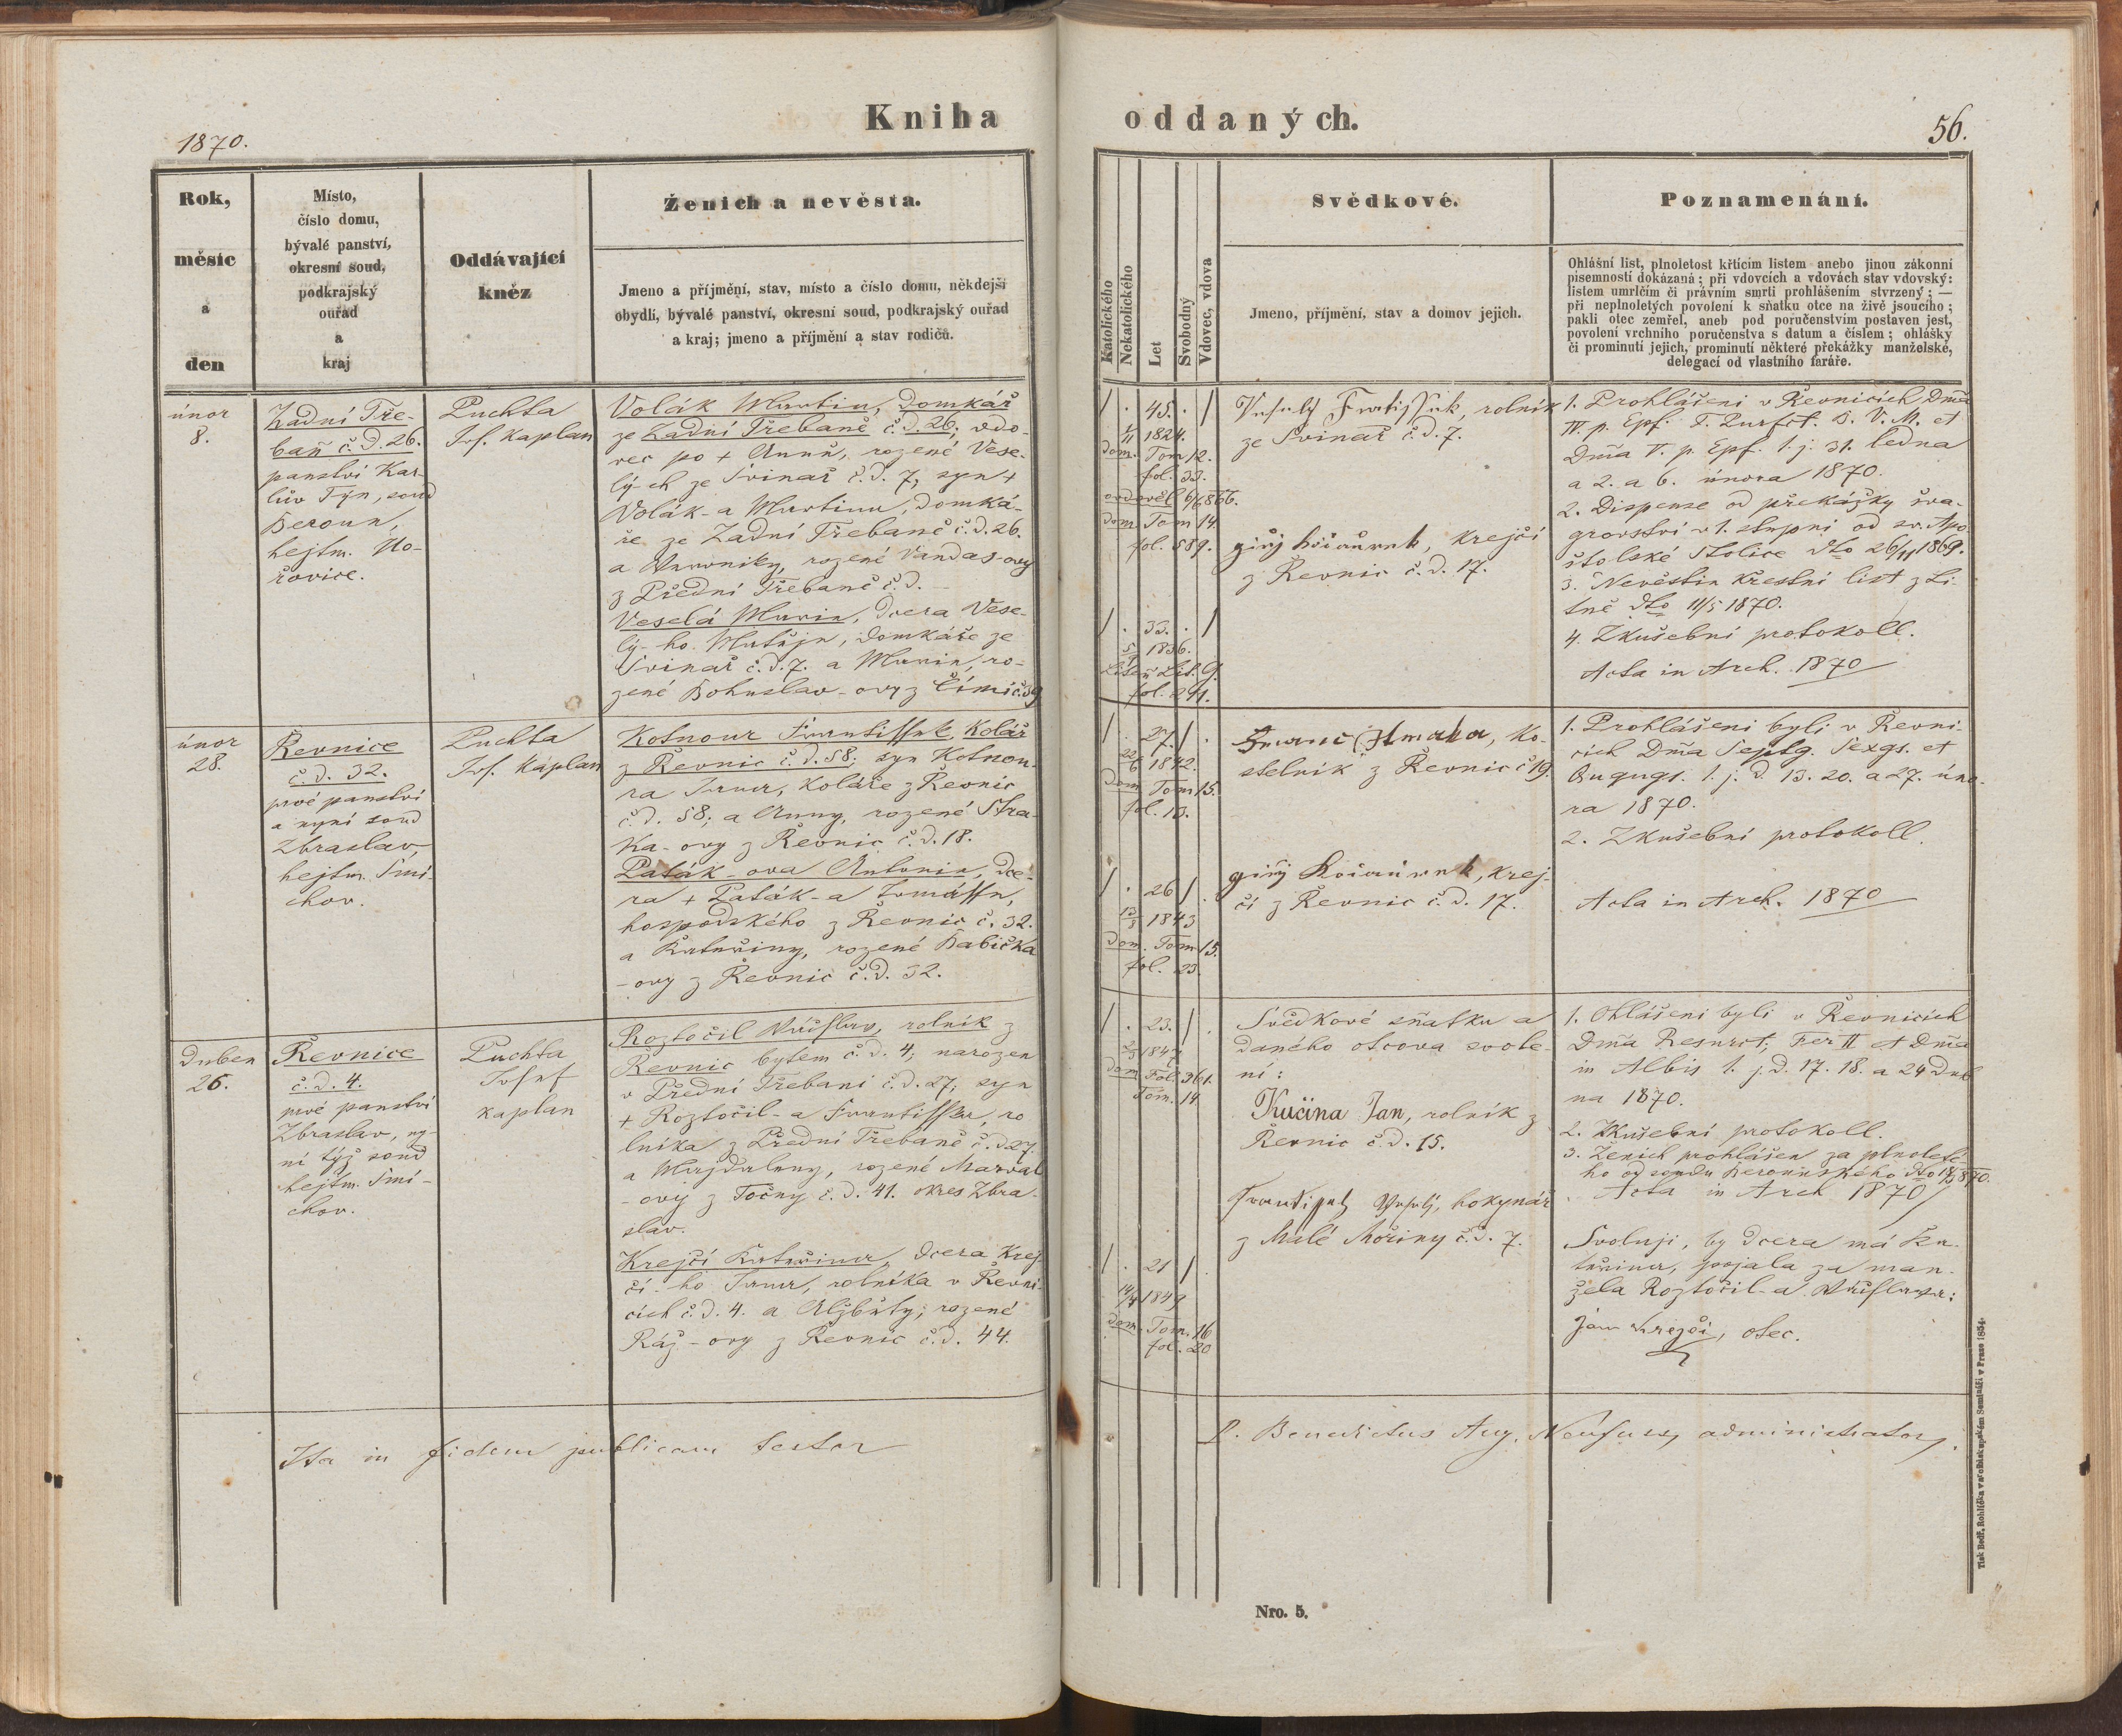 1870.
Kniha
Rok,
měsíc
a
den
Místo,
číslo domu,
bývalé panství,
okresní soud,
podkrajský
ouřad
a
kraj
Oddávající
kněz
Ženich a nevěsta.
Jmeno a příjmění, stav, místo a číslo domu, někdejší
obydlí, bývalé panství, okresní soud, podkrajský ouřad
a kraj; jmeno a příjmění a stav rodičů.
únor
8.
Zadní Tře-
baň č.d. 26.
panství Kar-
lův Týn, soud
Beroun,
hejtm. Ho-
řovice.
Puchta
Jos. Kaplan
Volák Martin, domkář
ze Zadní Třebaně č.d. 26; vdo-
vec po + Anně, rozené Vese-
lý-ch ze Svinař č.d. 7, syn +
Volák-a Martina, domká-
ře ze Zadní Třebaně č.d. 26.
a Veroniky, rozené Vandas-ovy
z Přední Třebaně č.d.
Veselá Marie, dcera Vese-
lý-ho Matěje, domkáře ze
Svinař č.d. 7. a Marie, ro-
zené Bohuslav-ovy z
únor
28.
Řevnice
č.d. 32.
prvé panství
a nyní soud
Zbraslav,
hejtm. Smí-
chov.
Puchta
Jos. Kaplan
Kotnour Frantissek, Kolář
z Řevnic č.d. 58; syn Kotnou-
ra Jana, Koláře z Řevnic
č.d. 58; a Anny, rozené Stra-
ka-ovy z Řevnic č.d. 18.
Paták-ova Antonie, dce-
ra + Paták-a Tomásse,
hospodského z Řevnic č. 32.
a Kateřiny, rozené Babička
-ovy z Řevnic č.d. 32.
Duben
26.
Řevnice
č.d. 4.
prvé panství
Zbraslav, ny-
ní týž soud
hejtm. Smí-
chov.
Puchta
Josef
kaplan
Roztočil Václav, rolník z
Řevnic bytem č.d. 4; narozen
v Přední Třebani č.d. 27; syn
+ Roztočil-a Frantisska, ro
lníka z Přední Třebaně č.d. 27.
a Majdaleny, rozené
-ovy z Točny č.d. 41. okres Zbra-
slav.
Krejčí Kateřina, dcera Krej-
čí-ho Jana, rolníka v Řevni-
cích č.d. 4. a Alžběty; rozené
Ráž-ovy z Řevnic č.d. 44.
Ita in fidem publicam testor
oddaných.
56.
Katolického
Nekatolického
Let
Svobodný
Vdovec, vdova
Svědkové.
Jmeno, příjmění, stav a domov jejich.
Poznamenání.
Ohlášní list, plnoletost křtícím listem anebo jinou zákonní
písemností dokázaná; při vdovcích a vdovách stav vdovský:
listem umrlčím či právním smrti prohlášením stvrzený; —
při neplnoletých povolení k sňatku otce na živě jsoucího;
pakli otec zemřel, aneb pod poručenstvím postaven jest,
povolení vrchního poručenstva s datum a číslem; ohlášky
či prominutí jejich, prominutí některé překážky manželské,
delegací od vlastního faráře.
/ . 45. . /
1824.
dom. Tom 12.
fol. 33.
ovdověl
dom. Tom 14.
fol. 589.
/ . 33. . /
1836.
Lit. G.
fol. 241.
Veselý Frantissek, rolník
ze Svinař č.d. 7.
krejčí
z Řevnic č.d. 17.
1. Prohlášeni v Řevnicích Dm̃a
IV. p. Epf. F. Purfct. B. V. M. et
Dm̃a V. p. Epf. t.j. 31. ledna
a 2. a 6. února 1870.
2. Dispense od překážky šva-
grovství v 1. stupni od sv. Apo-
štolské Stolice dto 26/11 1869.
3. Nevěstin křestní list z Li-
tně dto 11/5 1870.
4. Zkušební protokoll.
Acta in Arch. 1870
/ . 27 / .
22/6 1842.
dom. Tom 15.
fol. 13.
/ . 26 / .
1843
dom. Tom 15.
fol. 23.
ko-
stelník z Řevnic č 19.
krej-
čí z Řevnic č.d. 17.
1. Prohlášeni byli v Řevni-
cích Dm̃a Septg. Sexgs. et
Quqgs. t.j. d. 13. 20. a 27. úno-
ra 1870.
2. Zkušební protokoll.
Acta in Arch. 1870
/ . 23. / .
1847
dom Fol. 361.
Tom. 14.
/ . 21 / .
14/4 1849
dom. Tom. 16
fol. 20
Svědkové sňatku a
daného otcova svole-
ní:
Kučina Jan, rolník z
Řevnic č.d. 15.
Frantissek Veselý, hokynář
z Malé Mořiny č.d. 7.
1. Ohlášeni byli v Řevnicích
Dm̃a Resurct; Fer II et Dm̃a
in Albis t.j. d. 17. 18. a 24 Dub
na 1870.
2. Zkušební protokoll.
3. Ženich prohlášen za plnoleté-
ho od soudu Berounského dto
Acta in Arch 1870
Svoluji, by dcera má Ka-
teřina, pojala za man-
žela Roztočil-a Václava:
Jan Krejčí, otec.
P. Benedictus Aug. administrator.
Nro. 5.
Tisk Bedř. Rohlíčka v arcibiskupském Semináři v Praze 1854.